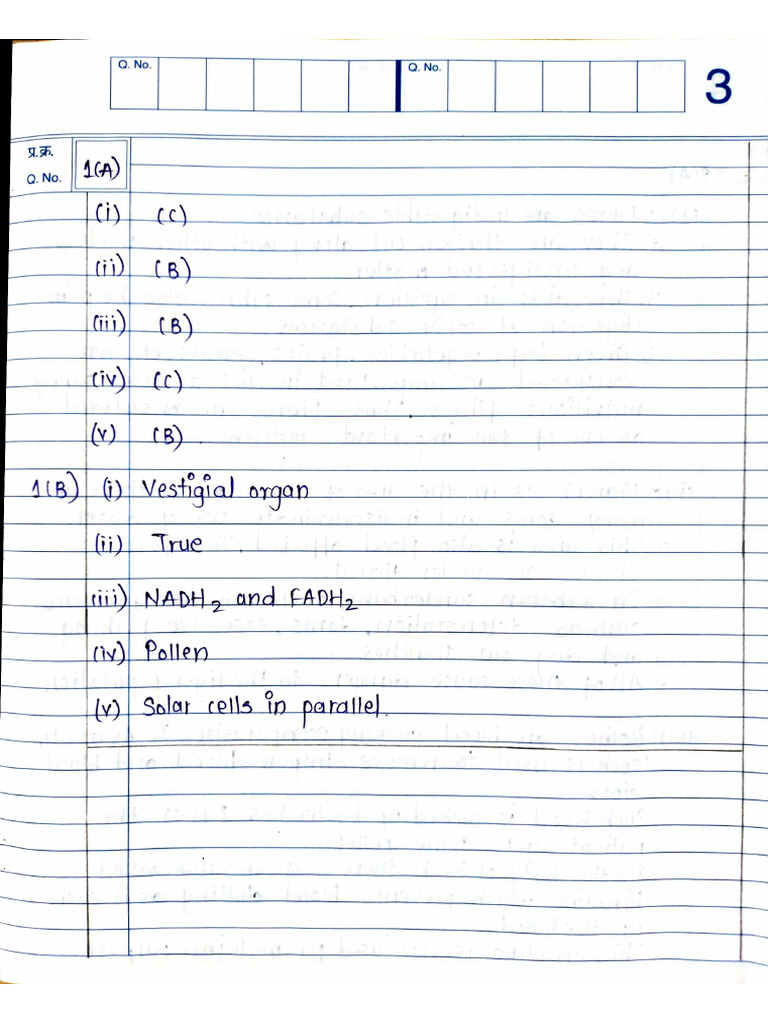 Q. No.
Q. No.
3
प्र.क्र.
Q. No.
1(A)
(i) (C)
(ii) (B)
(iii) (B)
(iv) (C)
(v) (B)
1(B) (i) Vestigial organ
(ii) True
(iii) NADH₂ and FADH₂
(iv) Pollen
(v) Solar cells in parallel.